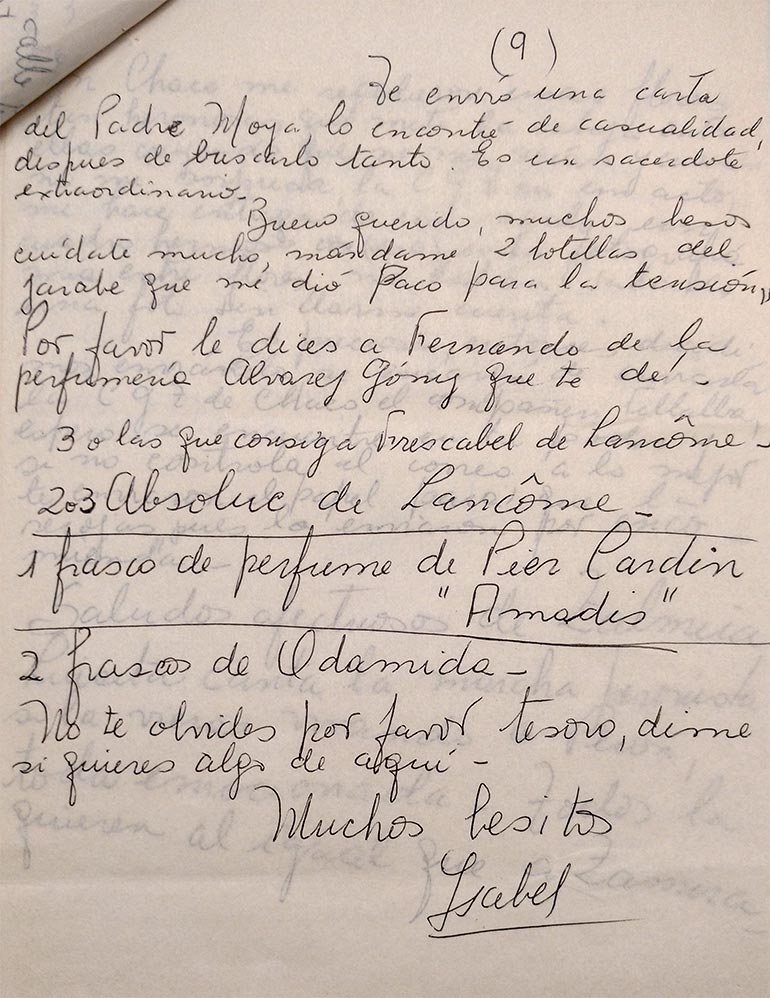 (9)
Te envió una carta
del Padre Moya, lo encontré de casualidad,
despues de buscarlo tanto. Es un sacerdote
extraordinario.-
Bueno querido, muchos besos
cuídate mucho, mándame 2 botellas del
jarabe que me dió Paco para la tensión,,
Por favor le dices a Fernando de la
perfumeria Alvarez Gómez que te dé.-
3 o las que consiga de Lancôme-
2o3 Absoluc de Lancôme-
1 frasco de perfume de Pier Cardin
"Amadis"
2 frascos de Odamida-
No te olvides por favor tesoro, dime
si quieres algo de aquí-
Muchos besitos
Isabel
calle